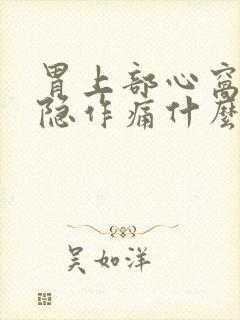 胃上部心窝
隐作痛什麼
吴如洋